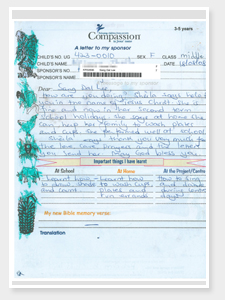 3-5 years
Compassion
in Jesus' name
A letter to my sponsor
CHILD'S NO. UG 423-0010 SEX F CLASS middle
CHILD'S NAME DATE
SPONSOR'S NO.
SPONSOR'S NAME
Dear Sung Dal Lee
How are you doing. Sheila says hello
to you in the name of Jesus Christ. She is
fine and again has second term
school holiday. She says at home she
can help her family to wash plates
and cups. She performed well at school
Sheila says thank you very much for
the love care prayers and the letters
you send her. May God bless you.
Important things I have learnt
At School At Home At the Project/Centre
I learnt how I learnt how How to sing
to draw shade to wash cups and dance
and count plates and during
two seconds days
My new Bible memory verse:
Translation